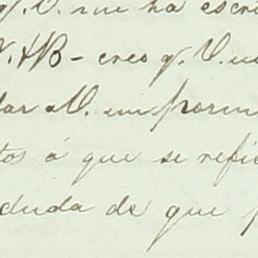 q.e V. me ha escri
V. HB - creo q. V. no
dar a V. un porme
tos á que se refie
duda de que